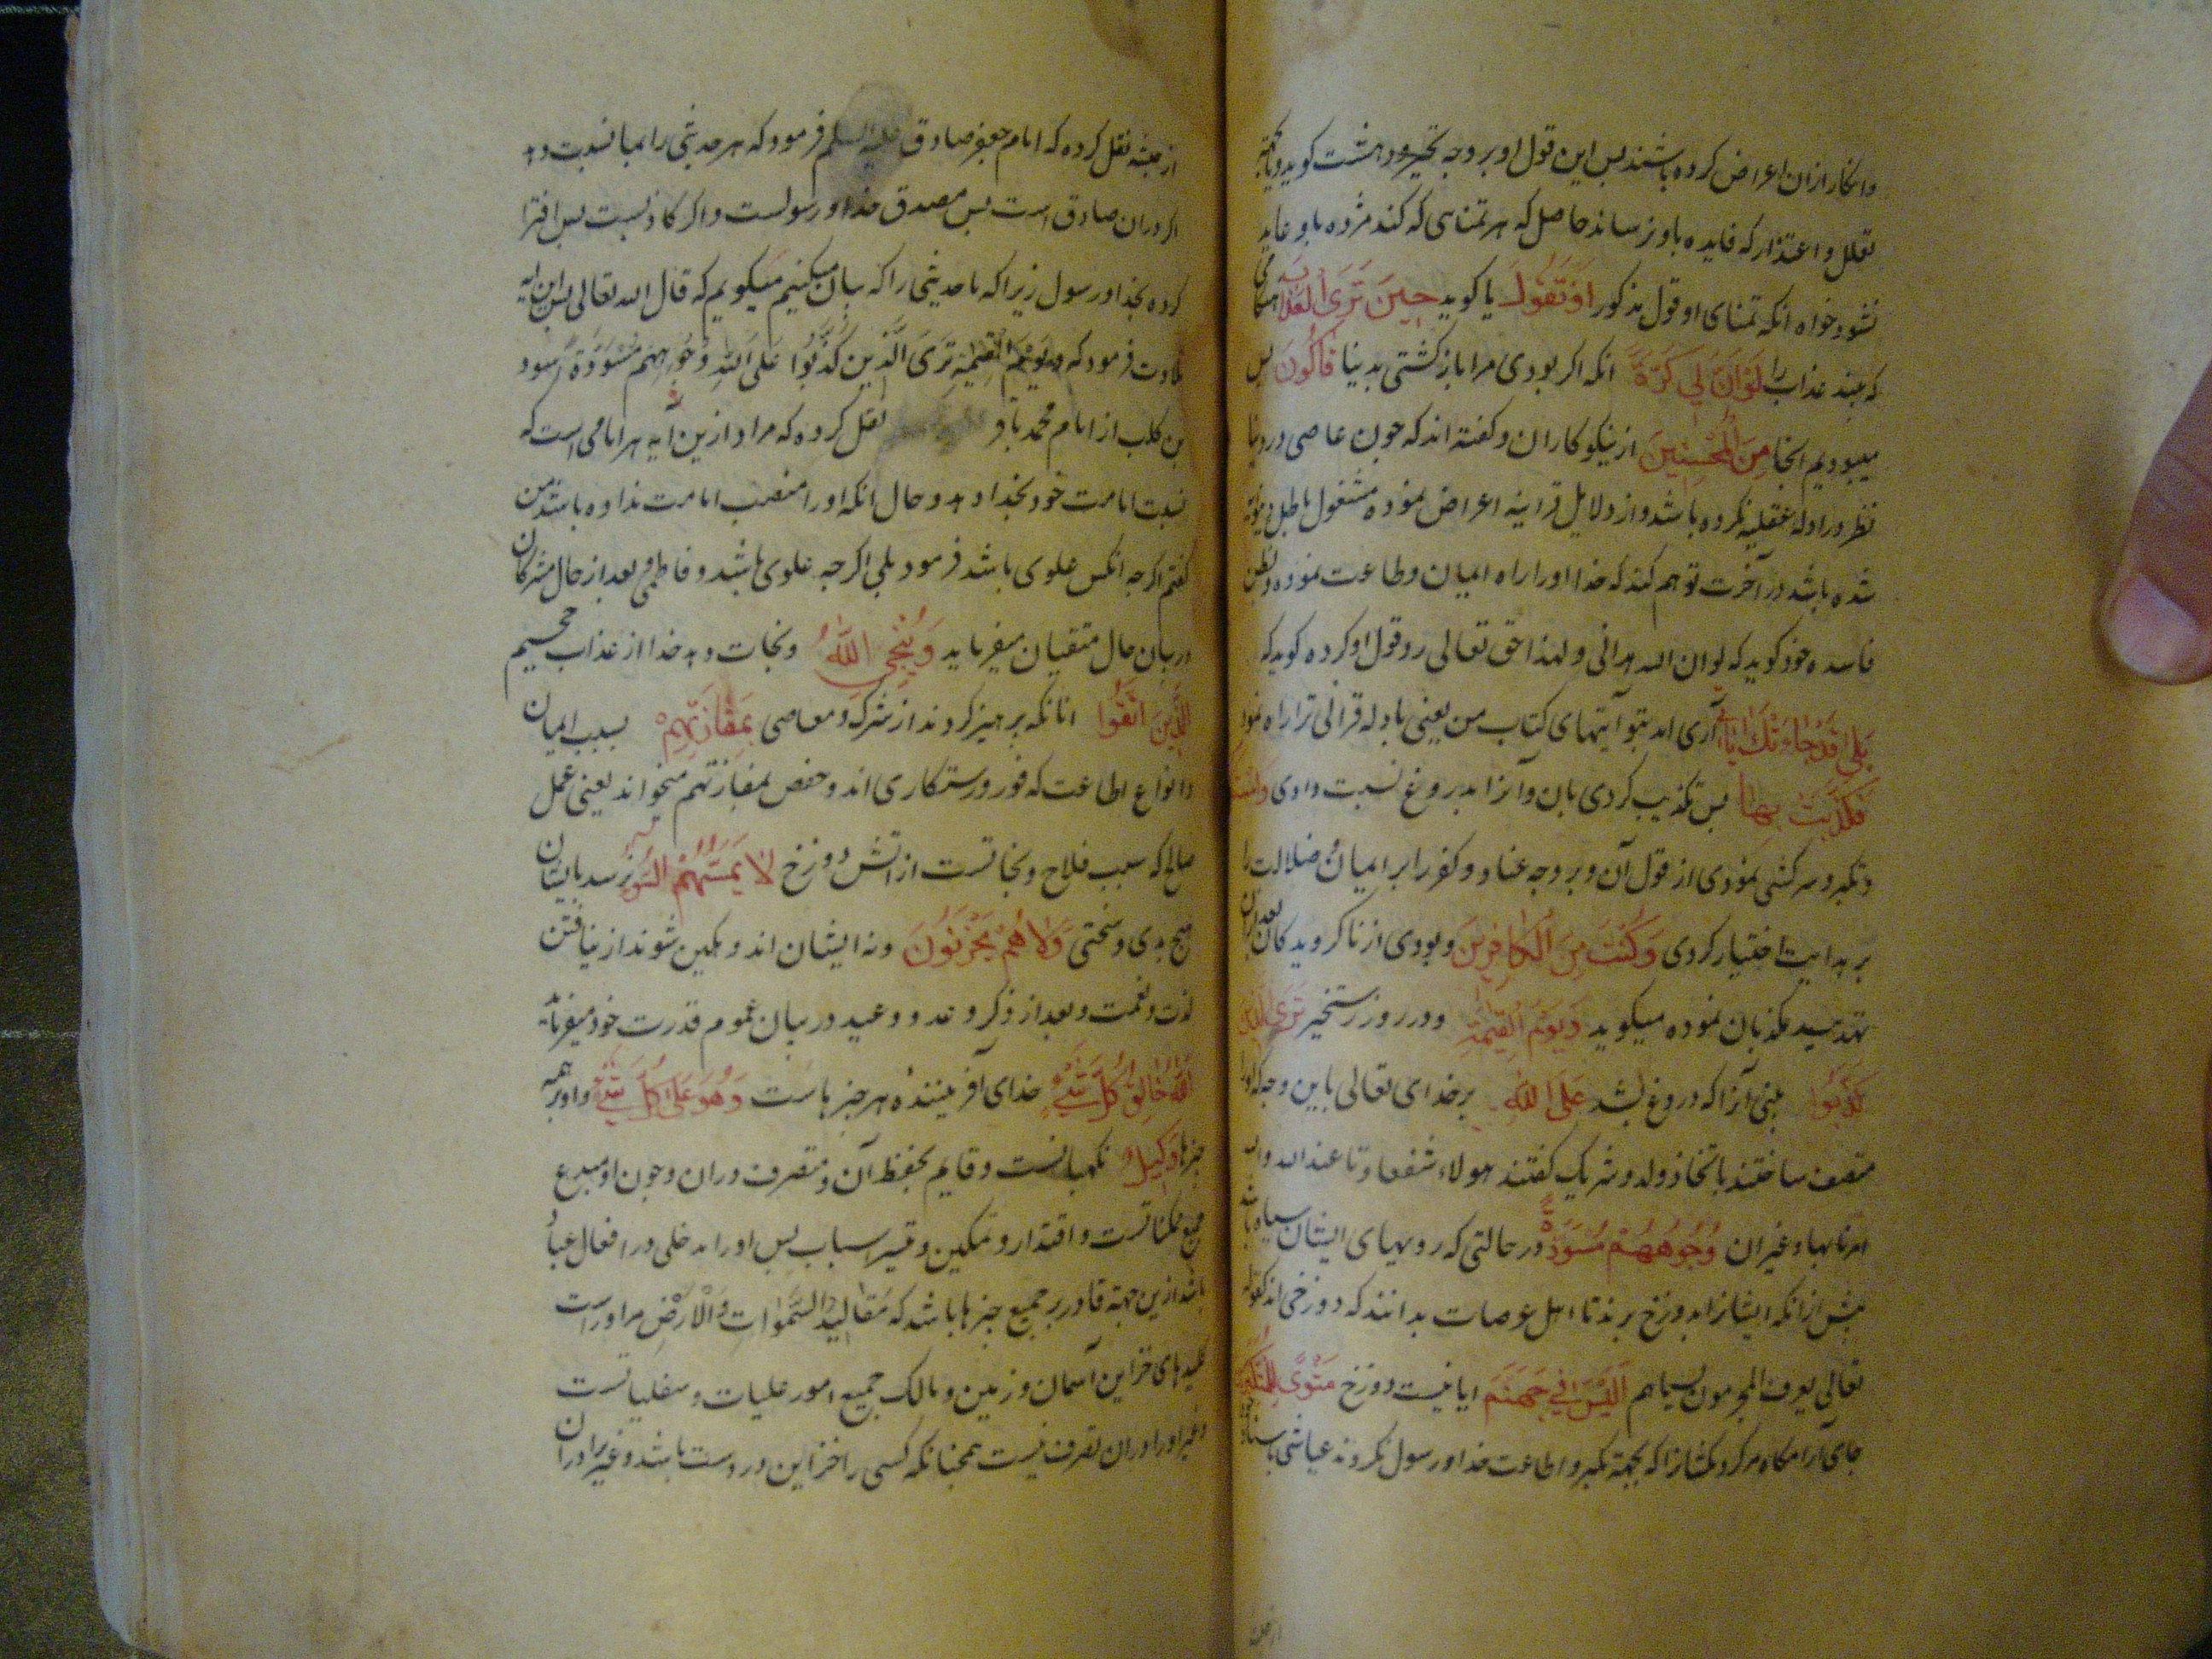 وانکار ازان اعراض کرده باشند پس این قول او بر وجه تحیر ودهشت کوید
تعلل واعتذار که فایده باو نرساند حاصل که هر تمنای که کند مژده باو عاید
نشود خواه انکه تمنای او قول مذکور اَوْ تَقُولَ یا کوید حِینَ تَرَی الْعَذَابَ
که بیند عذاب را لَوْ اَنَّ لِی کَرَّةً انکه اکر بودی مرا باز کشتی بدنیا فَاَکُونَ پس
میبودیم انجا مِنَ الْمُحْسِنِینَ از نیکوکاران وکفته اند که چون عاصی در دنیا
نظر در ادله عقلیه نکرده باشد واز دلایل قرانیه اعراض نموده مشغول باطل
شده باشد در آخرت توهم کند که خدا اورا راه ایمان وطاعت ننموده
فاسده خود کوید که لو ان الله هدانی ولهذا حق تعالی رد قول او کرده کوید که
بَلَی قَدْ جَاءَتْکَ آیَاتِی آری امد بتو آیتهای کتاب من یعنی بادله قرانی ترا راه نمود
فَکَذَّبْتَ بِهَا پس تکذیب کردی بان وآنرا بدروغ نسبت دادی
وتکبر وسرکشی نمودی از قول آن وبر وجه عناد وکفر را بر ایمان وضلالت را
بر هدایت اختیار کردی وَکُنْتَ مِنَ الْکَافِرِینَ وبودی از ناکرویدکان بعد ازان
تهدید مکذبان نموده میکوید وَیَوْمَ الْقِیمَةِ ودر روز رستخیز تَرَی الَّذِینَ
کَذَبُوا بینی آنرا که دروغ عَلَی اللهِ بر خدای تعالی باین وجه که اورا
متصف ساختند باتخاذ ولد وشریک کفتند هولاء شفعاونا عند الله
امرنا بها وغیر ان وُجُوهُهُمْ مُسْوَدَّةٌ در حالتی که رویهای ایشان سیاه باشد
پیش ازانکه ایشانرا بدوزخ برند تا اهل عرصات بدانند که دوزخی اند کقوله
تعالی یعرف المجرمون بسیماهم اَلَیْسَ فِی جَهَنَّمَ ایا نیست دوزخ مَثْوًی لِلْمُتَکَبِّرِینَ
جای آرامکاه مر کردنکشانرا که بجهة تکبر اطاعت خدا ورسول نکردند عیاشی
نقل کرده که امام جعفر صادق علیه السلم فرمود که هر حدیثی را بما نسبت
اکر دران صادق است پس مصدق خدا ورسولست واکر کاذبست پس افترا
کرده بخدا ورسول زیرا که ما حدیثی را که بیان میکنیم میکویم که قال الله تعالی پس این ایه
تلاوت فرمود که وَیَوْمَ الْقِیمَةِ تَرَی الَّذِینَ کَذَبُوا عَلَی اللهِ وُجُوهُهُمْ مُسْوَدَّةٌ
بن کلیب از امام محمد باقر نقل کرده که مراد ازین آیه هر امامی است که
نسبت امامت خود بخدا دهد وحال انکه اورا منصب امامت نداده باشد من
کفتم اکرچه انکس علوی باشد فرمود بلی اکرچه علوی باشد وفاطمی وبعد از حال مشرکان
در بیان حال متقیان میفرماید وَیُنَجِّی اللهُ ونجات دهد خدا از عذاب جحیم
الَّذِینَ اتَّقَوْا انانکه پرهیز کردند از شرک ومعاصی بِمَفَازَتِهِمْ بسبب ایمان
وانواع اطاعت که فوز ورستکاری اند وحفص بمفازتهم میخواند یعنی عمل
صالح که سبب فلاح ونجاتست از اتش دوزخ لَا یَمَسُّهُمُ السُّوءُ نرسد بایشان
هیچ بدی وسختی وَلَا هُمْ یَحْزَنُونَ ونه ایشان اندوهکین شوند از نیافتن
لذت ونعمت وبعد از ذکر وعد ووعید در بیان عموم قدرت خود میفرماید
اللهُ خَالِقُ کُلِّ شَیْءٍ خدای آفریننده هر چیزهاست وَهُوَ عَلَی کُلِّ شَیْءٍ واو بر همه
چیزها وَکِیلٌ نکهبانست وقایم بحفظ آن ومتصرف دران وچون او مبدع
جمیع ممکناتست واقتدار وتمکین وتیسیر اسباب پس اورا مدخلی در افعال عباد
باشد ازین جهة قادر بر جمیع چیزها باشد که مَقَالِیدُ السَّمَوَاتِ وَالْاَرْضِ مر اوراست
کلیدهای خزاین آسمان وزمین ومالک جمیع امور علیات وسفلیاتست
وغیر اورا دران تصرف نیست همچنانکه کسی را خزاین در دست باشد وغیر اورا دران